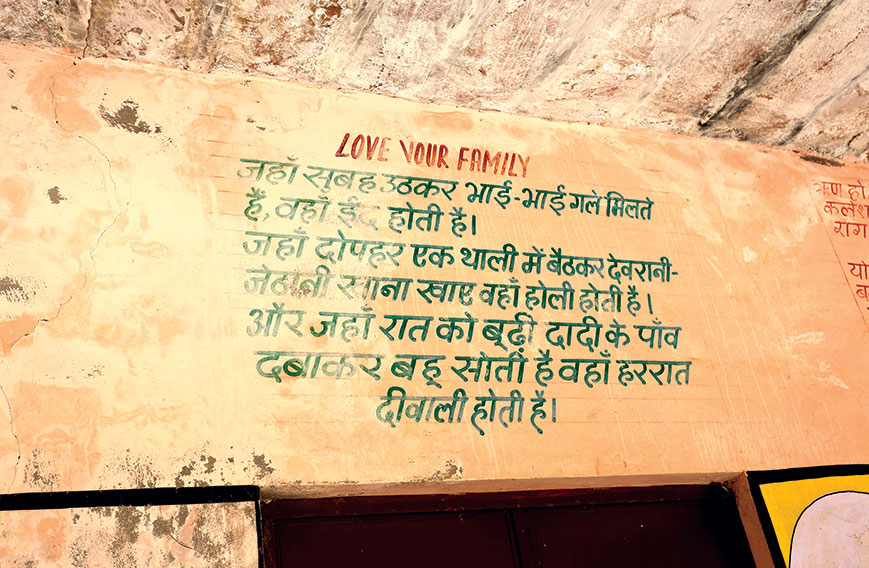 LOVE YOUR FAMILY
जहाँ सुबह उठकर भाई-भाई गले मिलते
हैं, वहाँ ईद होती है।
जहाँ दोपहर एक थाली में बैठकर देवरानी-
जेठानी साना खाए वहाँ होली होती है।
और जहाँ रात को बूढ़ी दादी के पाँव
दबाकर बहू सोती है वहाँ हररात
दीवाली होती है।
ऋण हो
कलश
राग
यो
ब